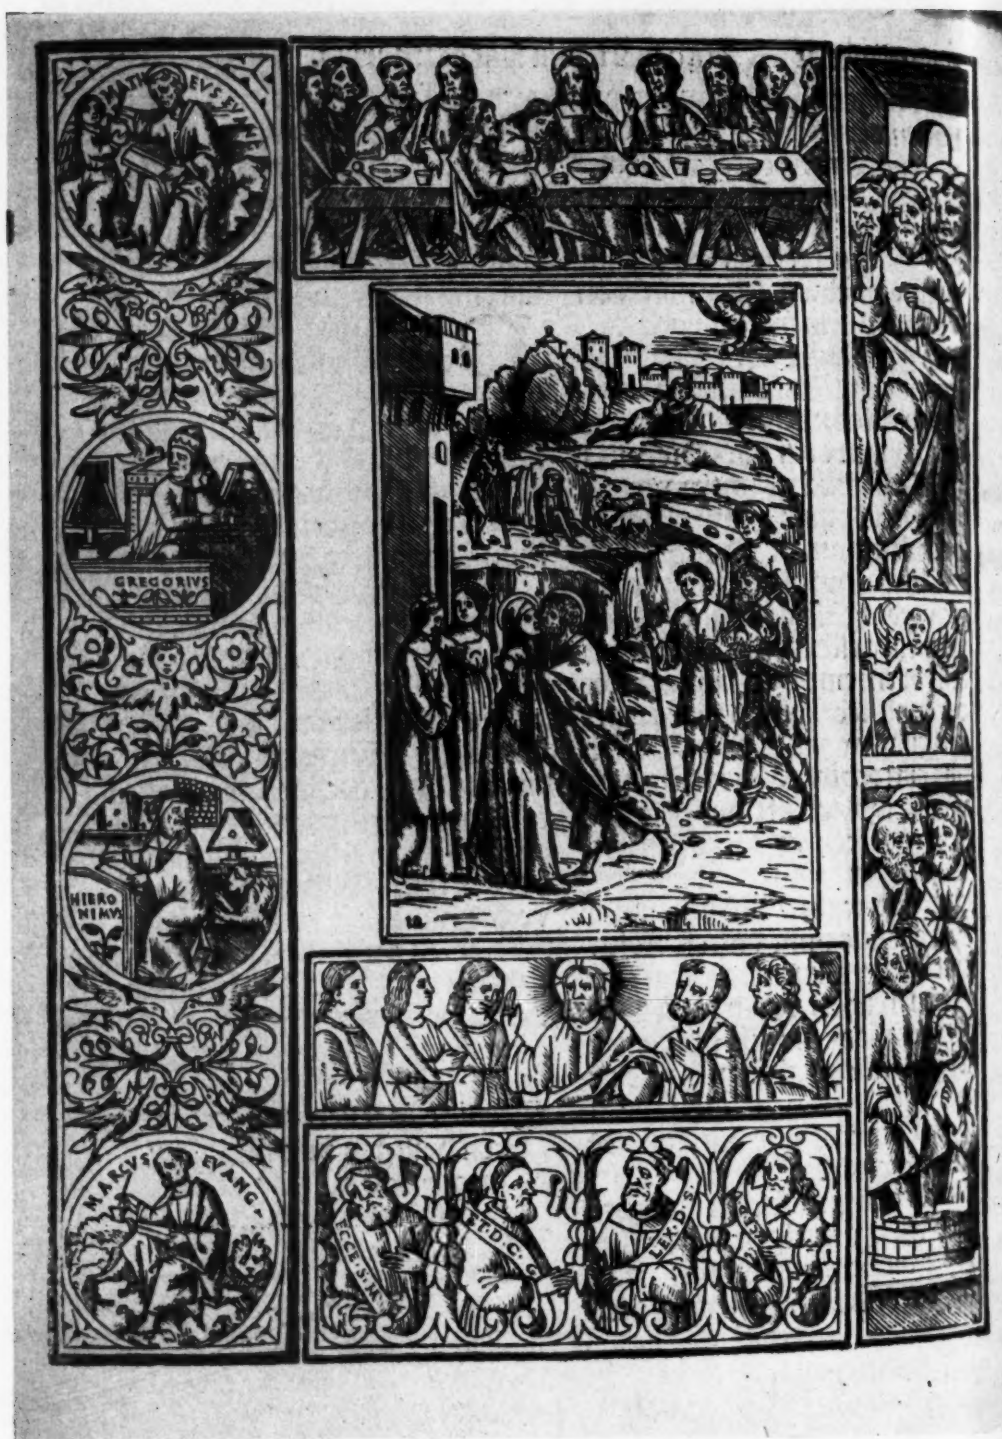 MATH EVS EVANG
GREGORIVS
HIERO
NIMVS
MARCVS EVANG
ECCE·S·IN
ET·D·C·G
LEX·D·S·